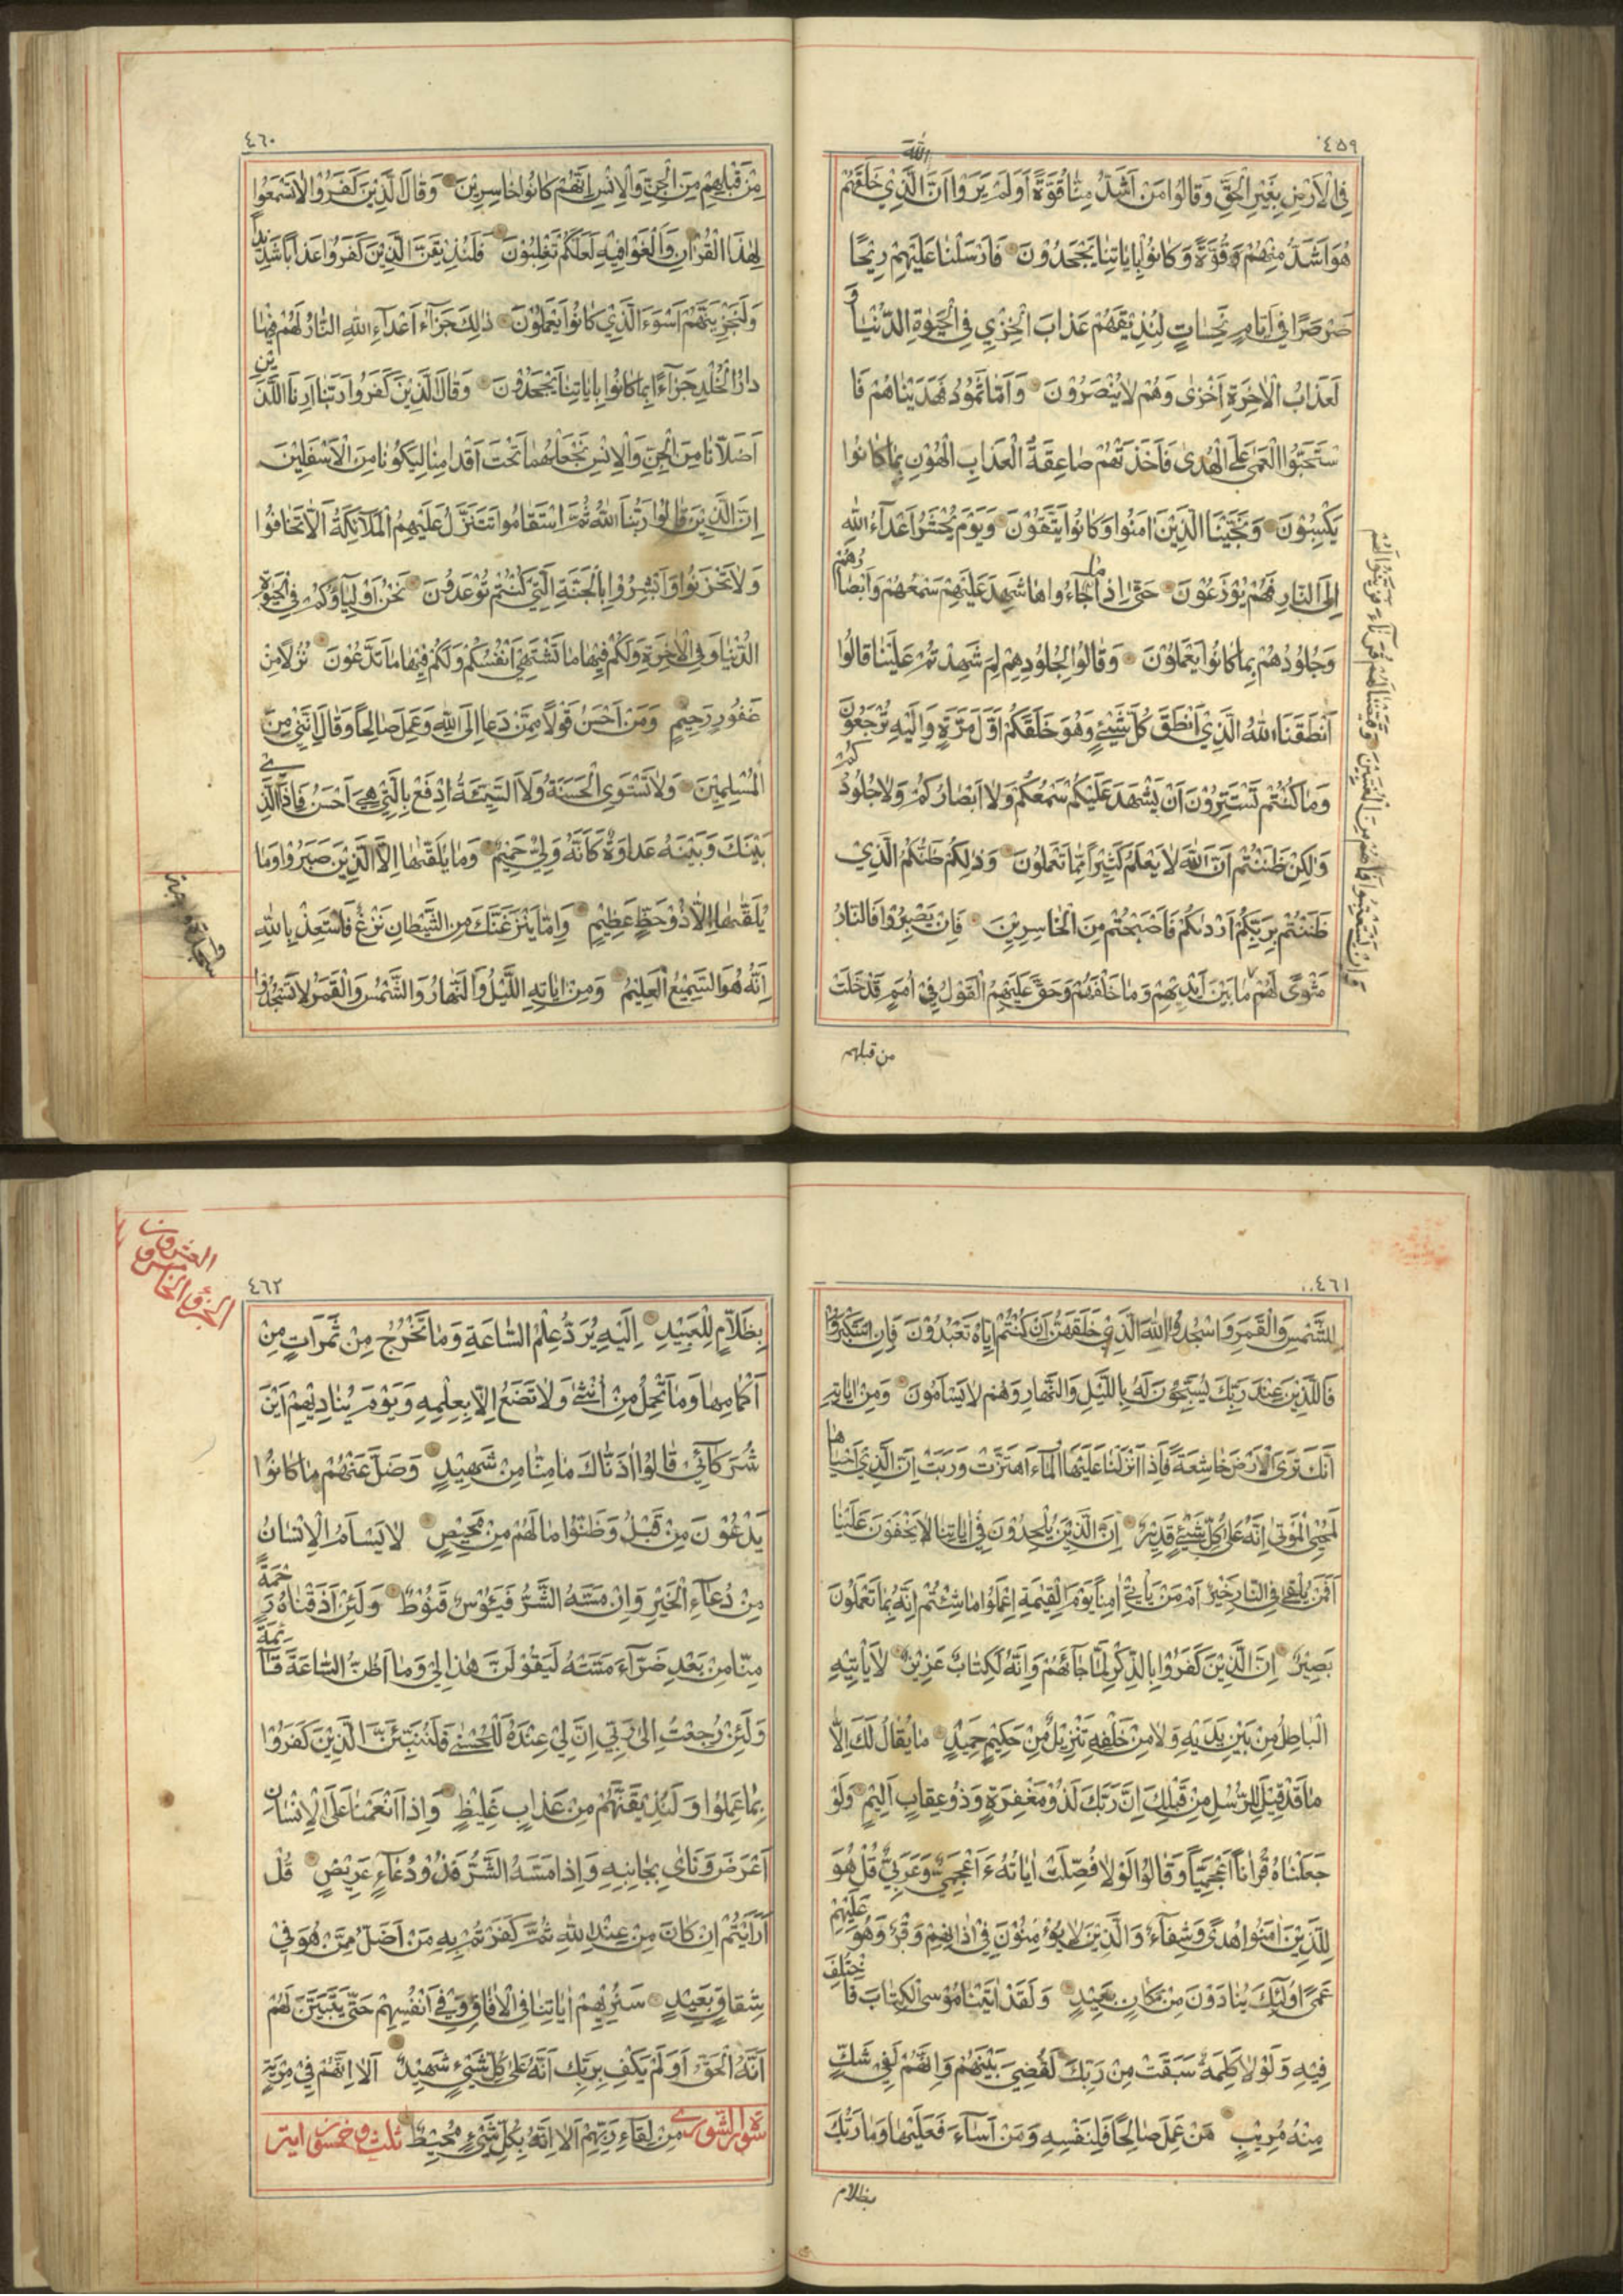 ٤٥٩
الله
فِي الْاَرْضِ بِغَيْرِ الْحَقِّ وَقَالُوا مَنْ اَشَدُّ مِنَّا قُوَّةً اَوَلَمْ يَرَوْا اَنَّ الَّذِي خَلَقَهُمْ
هُوَ اَشَدُّ مِنْهُمْ قُوَّةً وَكَانُوا بِاٰيَاتِنَا يَجْحَدُوْنَ فَاَرْسَلْنَا عَلَيْهِمْ رِيْحًا
صَرْصَرًا فِي اَيَّامٍ نَحِسَاتٍ لِنُذِيْقَهُمْ عَذَابَ الْخِزْيِ فِي الْحَيٰوةِ الدُّنْيَا وَ
لَعَذَابُ الْاٰخِرَةِ اَخْزٰى وَهُمْ لَا يُنْصَرُوْنَ وَاَمَّا ثَمُوْدُ فَهَدَيْنَاهُمْ فَا
سْتَحَبُّوا الْعَمٰى عَلَى الْهُدٰى فَاَخَذَتْهُمْ صَاعِقَةُ الْعَذَابِ الْهُوْنِ بِمَا كَانُوا
يَكْسِبُوْنَ وَنَجَّيْنَا الَّذِيْنَ اٰمَنُوا وَكَانُوا يَتَّقُوْنَ وَيَوْمَ يُحْشَرُ اَعْدَآءُ اللهِ
اِلَى النَّارِ فَهُمْ يُوْزَعُوْنَ حَتّٰى اِذَا مَا جَآءُوهَا شَهِدَ عَلَيْهِمْ سَمْعُهُمْ وَاَبْصَارُهُمْ
وَجُلُوْدُهُمْ بِمَا كَانُوا يَعْمَلُوْنَ وَقَالُوا لِجُلُوْدِهِمْ لِمَ شَهِدْتُمْ عَلَيْنَا قَالُوا
اَنْطَقَنَا اللهُ الَّذِي اَنْطَقَ كُلَّ شَيْءٍ وَهُوَ خَلَقَكُمْ اَوَّلَ مَرَّةٍ وَاِلَيْهِ تُرْجَعُوْنَ
وَمَا كُنْتُمْ تَسْتَتِرُوْنَ اَنْ يَشْهَدَ عَلَيْكُمْ سَمْعُكُمْ وَلَا اَبْصَارُكُمْ وَلَا جُلُوْدُكُمْ
وَلٰكِنْ ظَنَنْتُمْ اَنَّ اللهَ لَا يَعْلَمُ كَثِيْرًا مِمَّا تَعْمَلُوْنَ وَذٰلِكُمْ ظَنُّكُمُ الَّذِيْ
ظَنَنْتُمْ بِرَبِّكُمْ اَرْدٰىكُمْ فَاَصْبَحْتُمْ مِنَ الْخَاسِرِيْنَ فَاِنْ يَصْبِرُوْا فَالنَّارُ
مَثْوًى لَهُمْ مَا بَيْنَ اَيْدِيْهِمْ وَمَا خَلْفَهُمْ وَحَقَّ عَلَيْهِمُ الْقَوْلُ فِيْ اُمَمٍ قَدْ خَلَتْ
وَاِنْ يَسْتَعْتِبُوا فَمَا هُمْ مِنَ الْمُعْتَبِيْنَ وَقَيَّضْنَا لَهُمْ قُرَنَآءَ فَزَيَّنُوْا لَهُمْ
من قبلهم
٤٦٠
مِنْ قَبْلِهِمْ مِنَ الْجِنِّ وَالْاِنْسِ اِنَّهُمْ كَانُوا خَاسِرِيْنَ وَقَالَ الَّذِيْنَ كَفَرُوْا لَا تَسْمَعُوا
لِهٰذَا الْقُرْاٰنِ وَالْغَوْا فِيْهِ لَعَلَّكُمْ تَغْلِبُوْنَ فَلَنُذِيْقَنَّ الَّذِيْنَ كَفَرُوا عَذَابًا شَدِيْدًا
وَلَنَجْزِيَنَّهُمْ اَسْوَءَ الَّذِيْ كَانُوا يَعْمَلُوْنَ ذٰلِكَ جَزَآءُ اَعْدَآءِ اللهِ النَّارُ لَهُمْ فِيْهَا
دَارُ الْخُلْدِ جَزَآءً بِمَا كَانُوا بِاٰيَاتِنَا يَجْحَدُوْنَ وَقَالَ الَّذِيْنَ كَفَرُوا رَبَّنَا اَرِنَا الَّذَيْنِ
اَضَلَّانَا مِنَ الْجِنِّ وَالْاِنْسِ نَجْعَلْهُمَا تَحْتَ اَقْدَامِنَا لِيَكُوْنَا مِنَ الْاَسْفَلِيْنَ
اِنَّ الَّذِيْنَ قَالُوا رَبُّنَا اللهُ ثُمَّ اسْتَقَامُوا تَتَنَزَّلُ عَلَيْهِمُ الْمَلَآئِكَةُ اَلَّا تَخَافُوا
وَلَا تَحْزَنُوا وَاَبْشِرُوْا بِالْجَنَّةِ الَّتِيْ كُنْتُمْ تُوْعَدُوْنَ نَحْنُ اَوْلِيَآؤُكُمْ فِي الْحَيٰوةِ
الدُّنْيَا وَفِي الْاٰخِرَةِ وَلَكُمْ فِيْهَا مَا تَشْتَهِيْ اَنْفُسُكُمْ وَلَكُمْ فِيْهَا مَا تَدَّعُوْنَ نُزُلًا مِنْ
غَفُوْرٍ رَحِيْمٍ وَمَنْ اَحْسَنُ قَوْلًا مِمَّنْ دَعَا اِلَى اللهِ وَعَمِلَ صَالِحًا وَقَالَ اِنَّنِيْ مِنَ
الْمُسْلِمِيْنَ وَلَا تَسْتَوِي الْحَسَنَةُ وَلَا السَّيِّئَةُ اِدْفَعْ بِالَّتِيْ هِيَ اَحْسَنُ فَاِذَا الَّذِي
بَيْنَكَ وَبَيْنَهُ عَدَاوَةٌ كَاَنَّهُ وَلِيٌّ حَمِيْمٌ وَمَا يُلَقّٰىهَا اِلَّا الَّذِيْنَ صَبَرُوْا وَمَا
يُلَقّٰىهَا اِلَّا ذُوْ حَظٍّ عَظِيْمٍ وَاِمَّا يَنْزَغَنَّكَ مِنَ الشَّيْطَانِ نَزْغٌ فَاسْتَعِذْ بِاللهِ
اِنَّهُ هُوَ السَّمِيْعُ الْعَلِيْمُ وَمِنْ اٰيَاتِهِ اللَّيْلُ وَالنَّهَارُ وَالشَّمْسُ وَالْقَمَرُ لَا تَسْجُدُوْا
٤٦١
لِلشَّمْسِ وَلَا لِلْقَمَرِ وَاسْجُدُوْا لِلّٰهِ الَّذِيْ خَلَقَهُنَّ اِنْ كُنْتُمْ اِيَّاهُ تَعْبُدُوْنَ فَاِنِ اسْتَكْبَرُوْا
فَالَّذِيْنَ عِنْدَ رَبِّكَ يُسَبِّحُوْنَ لَهُ بِاللَّيْلِ وَالنَّهَارِ وَهُمْ لَا يَسْاَمُوْنَ وَمِنْ اٰيَاتِهِ
اَنَّكَ تَرَى الْاَرْضَ خَاشِعَةً فَاِذَا اَنْزَلْنَا عَلَيْهَا الْمَآءَ اهْتَزَّتْ وَرَبَتْ اِنَّ الَّذِيْ اَحْيَاهَا
لَمُحْيِ الْمَوْتٰى اِنَّهُ عَلٰى كُلِّ شَيْءٍ قَدِيْرٌ اِنَّ الَّذِيْنَ يُلْحِدُوْنَ فِيْ اٰيَاتِنَا لَا يَخْفَوْنَ عَلَيْنَا
اَفَمَنْ يُلْقٰى فِي النَّارِ خَيْرٌ اَمْ مَنْ يَاْتِيْ اٰمِنًا يَوْمَ الْقِيٰمَةِ اِعْمَلُوْا مَا شِئْتُمْ اِنَّهُ بِمَا تَعْمَلُوْنَ
بَصِيْرٌ اِنَّ الَّذِيْنَ كَفَرُوْا بِالذِّكْرِ لَمَّا جَآءَهُمْ وَاِنَّهُ لَكِتَابٌ عَزِيْزٌ لَا يَاْتِيْهِ
الْبَاطِلُ مِنْ بَيْنِ يَدَيْهِ وَلَا مِنْ خَلْفِهِ تَنْزِيْلٌ مِنْ حَكِيْمٍ حَمِيْدٍ مَا يُقَالُ لَكَ اِلَّا
مَا قَدْ قِيْلَ لِلرُّسُلِ مِنْ قَبْلِكَ اِنَّ رَبَّكَ لَذُوْ مَغْفِرَةٍ وَذُوْ عِقَابٍ اَلِيْمٍ وَلَوْ
جَعَلْنَاهُ قُرْاٰنًا اَعْجَمِيًّا وَقَالُوا لَوْلَا فُصِّلَتْ اٰيَاتُهُ ءَاَعْجَمِيٌّ وَعَرَبِيٌّ قُلْ هُوَ
لِلَّذِيْنَ اٰمَنُوا هُدًى وَشِفَآءٌ وَالَّذِيْنَ لَا يُؤْمِنُوْنَ فِيْ اٰذَانِهِمْ وَقْرٌ وَهُوَ عَلَيْهِمْ
عَمًى اُولٰئِكَ يُنَادَوْنَ مِنْ مَكَانٍ بَعِيْدٍ وَلَقَدْ اٰتَيْنَا مُوْسَى الْكِتَابَ فَاخْتُلِفَ
فِيْهِ وَلَوْلَا كَلِمَةٌ سَبَقَتْ مِنْ رَبِّكَ لَقُضِيَ بَيْنَهُمْ وَاِنَّهُمْ لَفِيْ شَكٍّ
مِنْهُ مُرِيْبٍ مَنْ عَمِلَ صَالِحًا فَلِنَفْسِهِ وَمَنْ اَسَآءَ فَعَلَيْهَا وَمَا رَبُّكَ
بظلام
الجزؤ الخامس
والعشرون
٤٦٢
بِظَلَّامٍ لِلْعَبِيْدِ اِلَيْهِ يُرَدُّ عِلْمُ السَّاعَةِ وَمَا تَخْرُجُ مِنْ ثَمَرَاتٍ مِنْ
اَكْمَامِهَا وَمَا تَحْمِلُ مِنْ اُنْثٰى وَلَا تَضَعُ اِلَّا بِعِلْمِهِ وَيَوْمَ يُنَادِيْهِمْ اَيْنَ
شُرَكَآئِي قَالُوا اٰذَنَّاكَ مَا مِنَّا مِنْ شَهِيْدٍ وَضَلَّ عَنْهُمْ مَا كَانُوا
يَدْعُوْنَ مِنْ قَبْلُ وَظَنُّوْا مَا لَهُمْ مِنْ مَحِيْصٍ لَا يَسْاَمُ الْاِنْسَانُ
مِنْ دُعَآءِ الْخَيْرِ وَاِنْ مَسَّهُ الشَّرُّ فَيَئُوْسٌ قَنُوْطٌ وَلَئِنْ اَذَقْنَاهُ رَحْمَةً
مِنَّا مِنْ بَعْدِ ضَرَّآءَ مَسَّتْهُ لَيَقُوْلَنَّ هٰذَا لِيْ وَمَا اَظُنُّ السَّاعَةَ قَآئِمَةً
وَلَئِنْ رُجِعْتُ اِلٰى رَبِّيْ اِنَّ لِيْ عِنْدَهُ لَلْحُسْنٰى فَلَنُنَبِّئَنَّ الَّذِيْنَ كَفَرُوْا
بِمَا عَمِلُوْا وَلَنُذِيْقَنَّهُمْ مِنْ عَذَابٍ غَلِيْظٍ وَاِذَا اَنْعَمْنَا عَلَى الْاِنْسَانِ
اَعْرَضَ وَنَاٰى بِجَانِبِهِ وَاِذَا مَسَّهُ الشَّرُّ فَذُوْ دُعَآءٍ عَرِيْضٍ قُلْ
اَرَاَيْتُمْ اِنْ كَانَ مِنْ عِنْدِ اللهِ ثُمَّ كَفَرْتُمْ بِهِ مَنْ اَضَلُّ مِمَّنْ هُوَ فِيْ
شِقَاقٍ بَعِيْدٍ سَنُرِيْهِمْ اٰيَاتِنَا فِي الْاٰفَاقِ وَفِيْ اَنْفُسِهِمْ حَتّٰى يَتَبَيَّنَ لَهُمْ
اَنَّهُ الْحَقُّ اَوَلَمْ يَكْفِ بِرَبِّكَ اَنَّهُ عَلٰى كُلِّ شَيْءٍ شَهِيْدٌ اَلَا اِنَّهُمْ فِيْ مِرْيَةٍ
سورة الشورى مِنْ لِقَآءِ رَبِّهِمْ اَلَا اِنَّهُ بِكُلِّ شَيْءٍ مُحِيْطٌ ثلث وخمسون اية